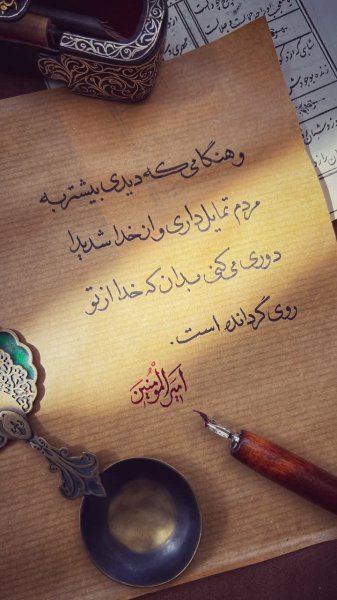 و هنگامی که دیدی بیشتر به
مردم تمایل داری و از خدا شدیدا
دوری می‌کنی بدان که خدا از تو
روی گردانده است.
أمیرالمؤمنین